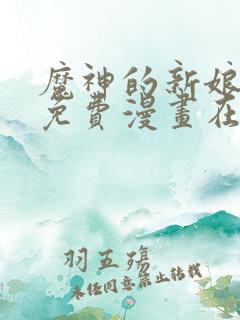 魔神的新娘
免費漫畫在
羽五殤
未经同意禁止转载